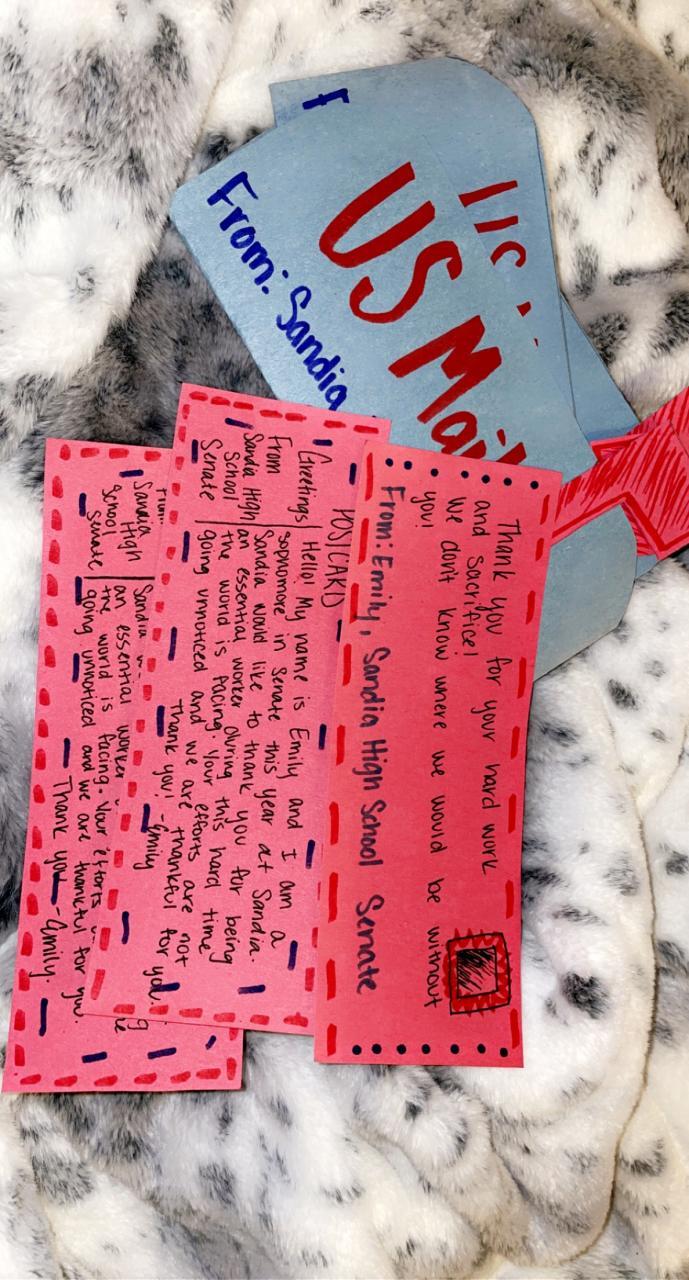 F
US
US Mail
From: Sandia
Thank you for your hard work
and sacrifice!
We don't know where we would be without
you!
From: Emily, Sandia High School Senate
POSTCARD
Greetings
From
Sandia High
School
Senate
Hello! My name is Emily and I am a
sophomore in Senate this year at Sandia.
Sandia would like to thank you for being
an essential worker during this hard time
the world is facing. Your efforts are not
going unnoticed and we are thankful for you.
Thank you! -Emily
From:
Sandia
High
School
Senate
Sandia
an essential worker
the world is facing. Your efforts
going unnoticed and we are thankful for you.
Thank you -Emily.